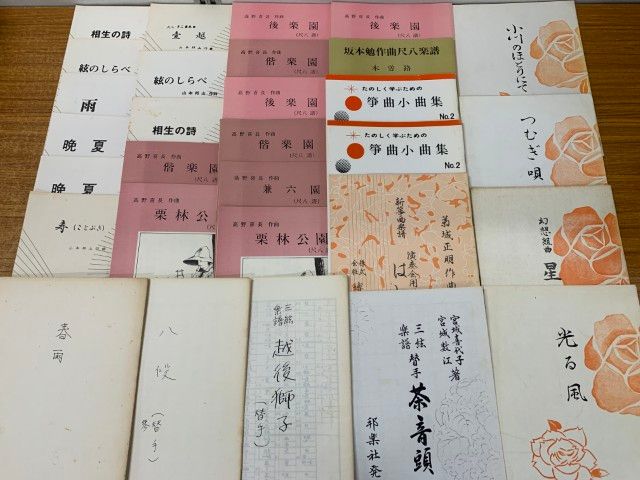 相生の詩
絃のしらべ
雨
晩夏
晩夏
寿(ことぶき)
山本邦山作曲
壹越
山本邦山作曲
絃のしらべ
山本邦山作曲
相生の詩
高野喜長 作曲
偕楽園
(尺八譜)
高野喜長 作曲
栗林公園
高野喜長 作曲
後楽園
(尺八譜)
高野喜長 作曲
偕楽園
(尺八譜)
高野喜長 作曲
後楽園
(尺八譜)
高野喜長 作曲
偕楽園
(尺八譜)
高野喜長 作曲
兼六園
(尺八譜)
高野喜長 作曲
栗林公園
(尺八譜)
高野喜長 作曲
後楽園
(尺八譜)
坂本勉作曲尺八楽譜
木曽路
たのしく学ぶための
箏曲小曲集
No.2
たのしく学ぶための
箏曲小曲集
No.2
新箏曲楽譜
菊城正明作曲
演奏会用
は
小川のほとりにて
つむぎ唄
幻想組曲
星
光る風
春雨
八段
(替手)
箏
三絃
楽譜
越後獅子
(替手)
宮城喜代子
宮城数江 著
三絃
楽譜
替手
茶音頭
邦楽社発